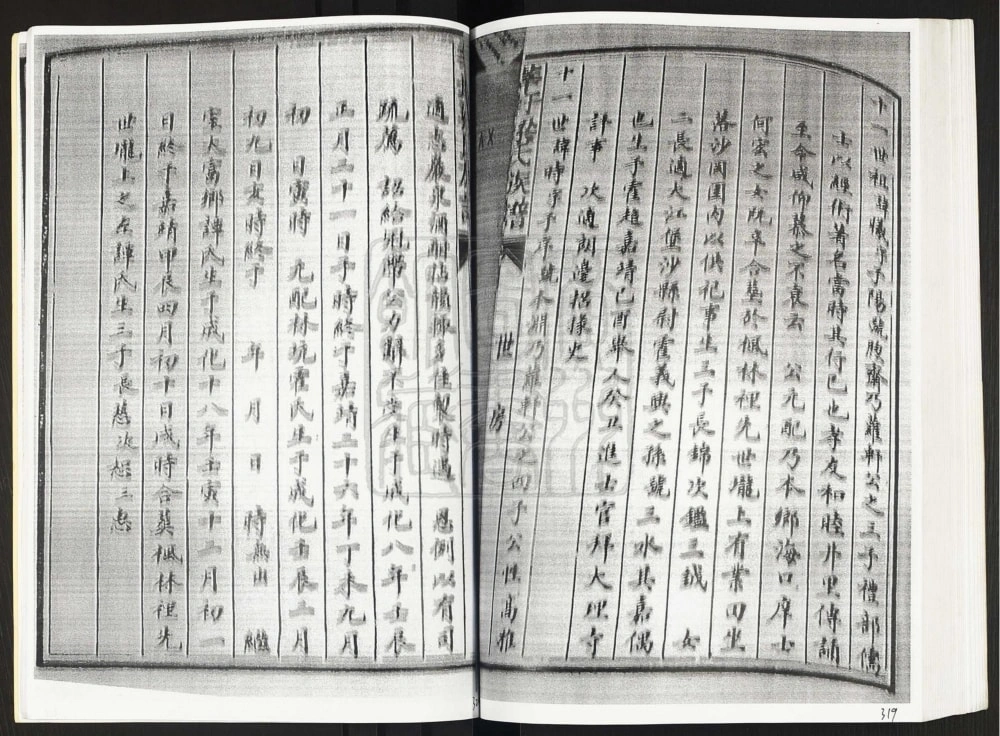 十一世祖諱犧字子陽號腴齋乃蘿軒公之三子禮部儒
士以經術著名當時其行己也孝友和睦井里傳誦
至今咸仰慕之不衰云　公元配乃本鄉海口庠士
何宏之女既卒合葬於楓林裡先世壠上有業田坐
落沙圍圍內以供祀事生三子長錦次鑑三鋮　女
二長適大江堡沙縣尉霍義興之孫號三水其嘉偶
也生子霍超嘉靖己酉舉人公丑進士官拜大理寺
評事　次適
十一世諱時字子序號本湖乃蘿軒公之四子公性高雅
氏族譜
世　房
適志嚴泉酒酣拈韻極多佳製時遇　恩例以有司
疏薦　詔給冠帶公力辭不受生于成化八年壬辰
正月二十一日子時終于嘉靖二十六年丁未九月
初　日寅時　元配林坑霍氏生于成化壬辰二月
初九日亥時終于　年　月　日　時　繼
室大富鄉譚氏生于成化十八年壬寅十二月初一
日終于嘉靖甲辰四月初十日戌時合葬楓林裡先
世壠上之左譚氏生三子長慈次恕三忠
319